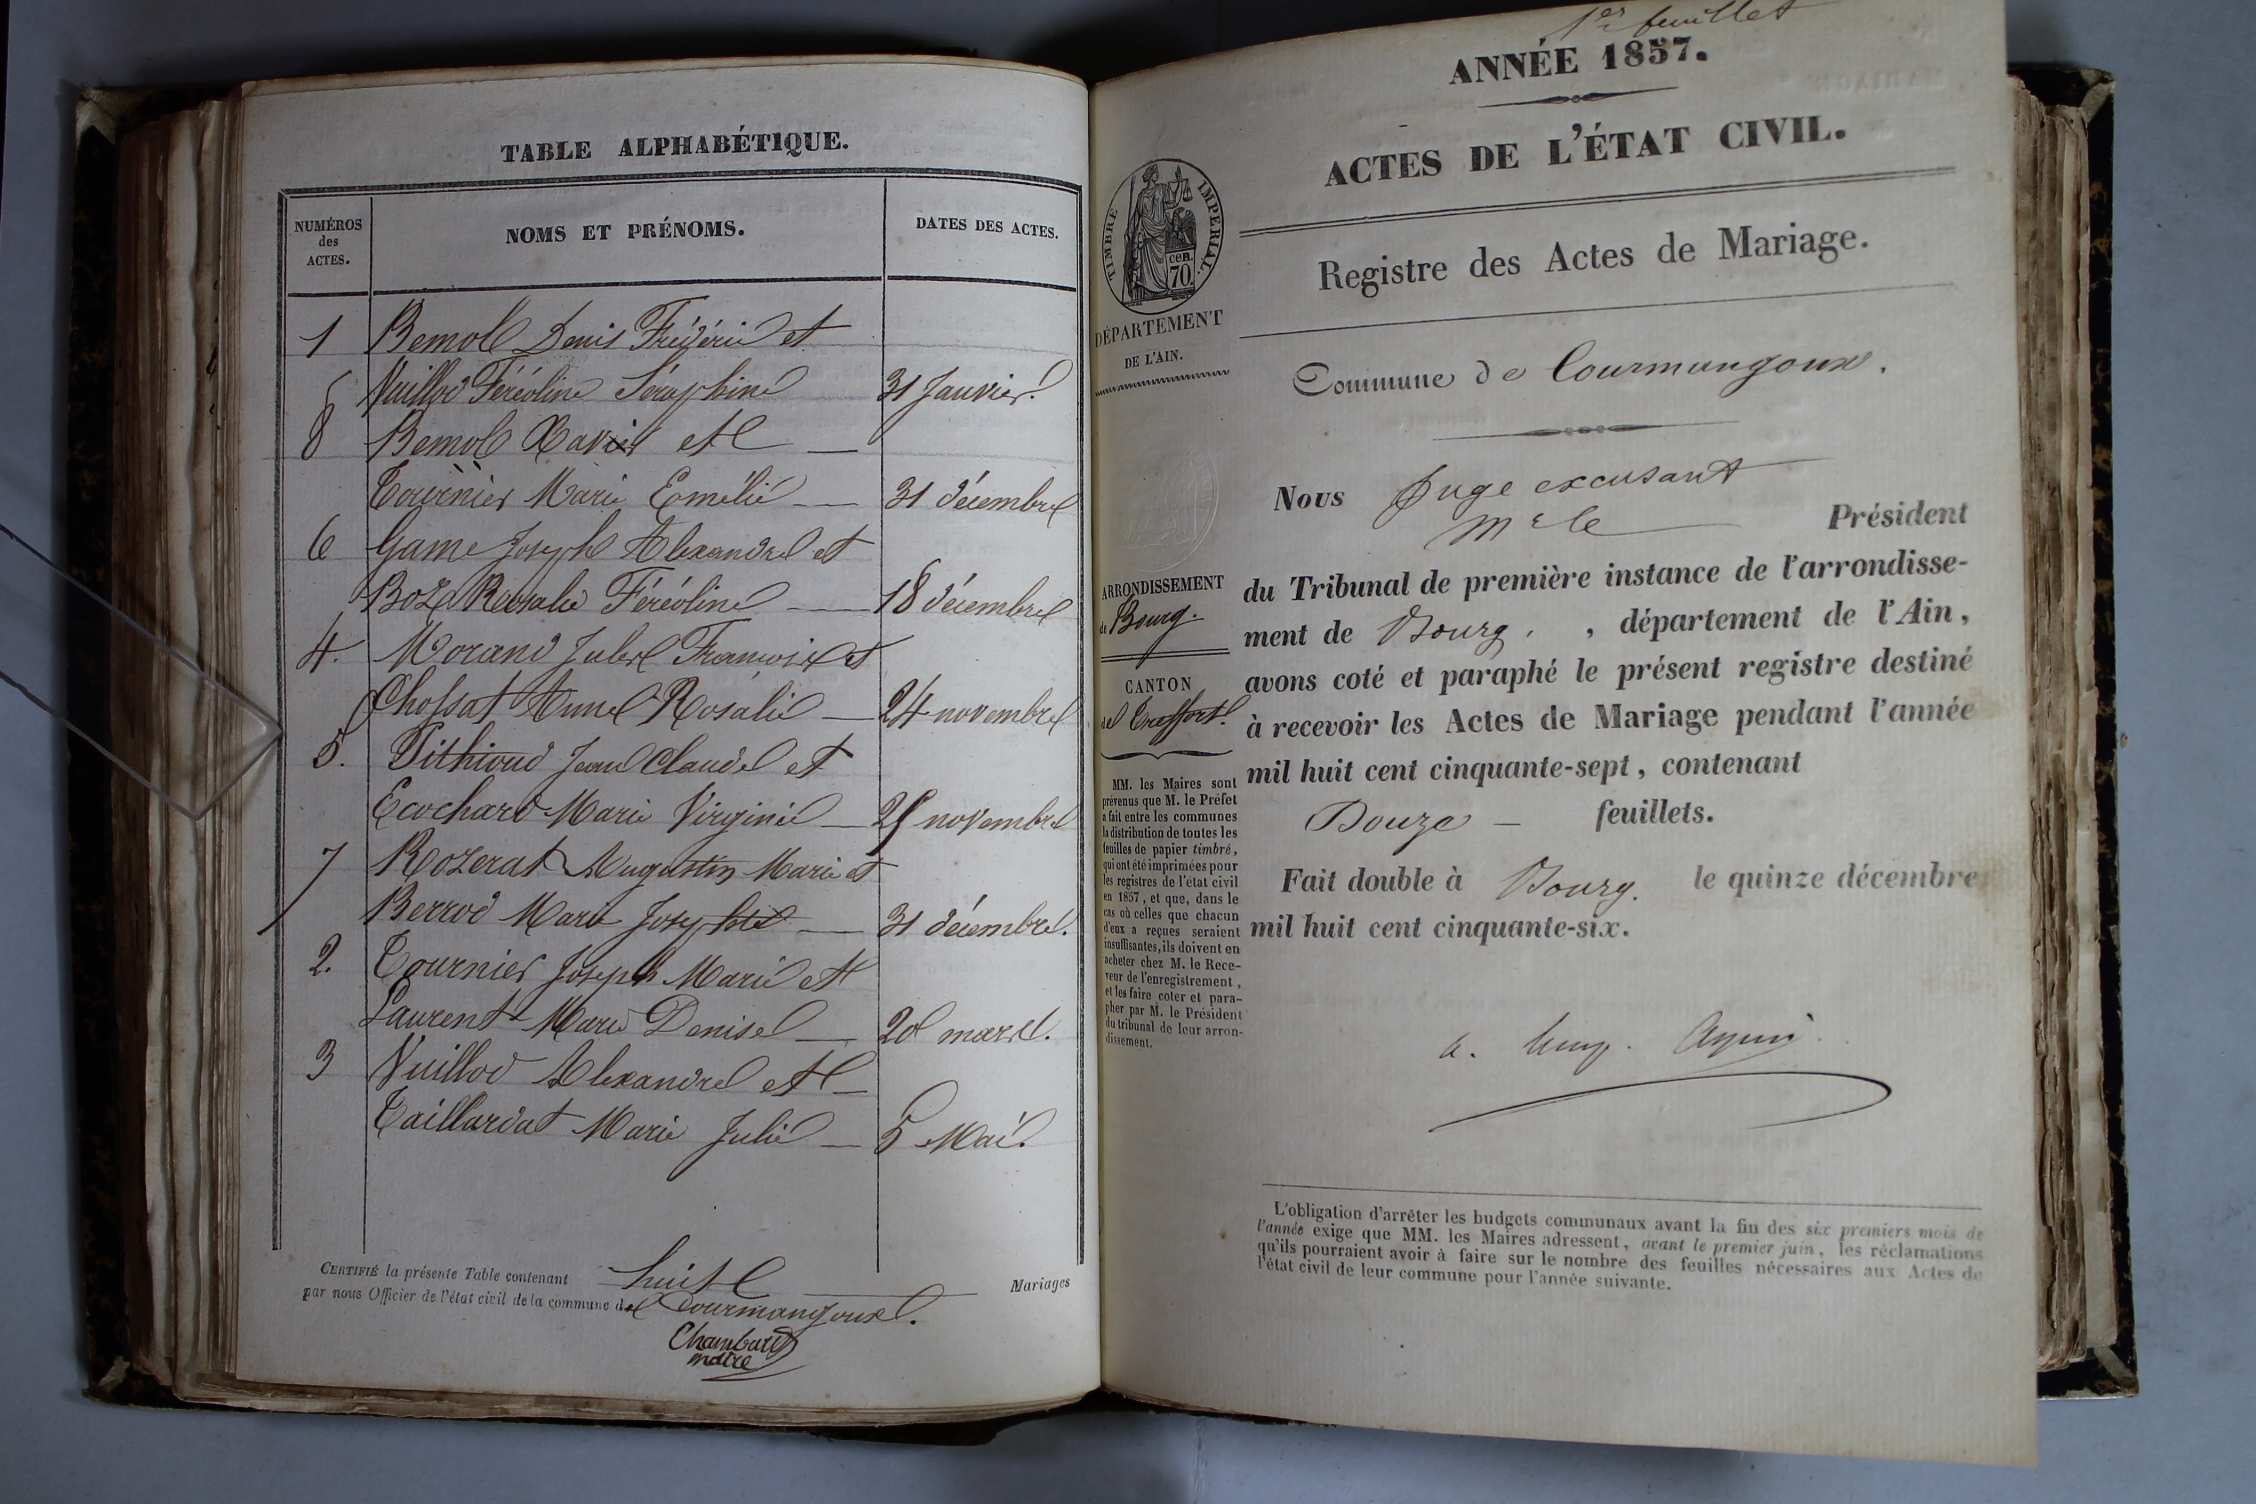 TABLE ALPHABÉTIQUE.
NUMÉROS des ACTES.
NOMS ET PRÉNOMS.
DATES DES ACTES.
1 Bemol Denis Fréderic et
Vuillod Féréoline Séraphine 31 Janvier.
8 Bemol Xavier et
Tournier Marie Emélie — 31 décembre
6 Game Joseph Alexandre et
Boz Rosalie Féréoline — 18 décembre
4. Morand Jules François et
Chossat Anne Rosalie — 24 novembre
5. Pithioud Jean Claude et
Ecochard Marie Virginie — novembre
7 Rozerat Augustin Marie et
Berrod Marie Josephte — 31 décembre.
2. Tournier Joseph Marie et
Laurent Marie Denise — mars.
3 Vuillod Alexandre et —
Taillardat Marie Julie — 5 Mai.
CERTIFIÉ la présente Table contenant huit Mariages
par nous Officier de l'état civil de la commune de Courmangoux.
Chambard
maire
1er feuillet
ANNÉE 1857.
ACTES DE L'ÉTAT CIVIL.
Registre des Actes de Mariage.
TIMBRE IMPÉRIAL.
cen.
70
DÉPARTEMENT
DE L'AIN.
Commune de Courmangoux.
Nous Juge excusant
Mr le Président
du Tribunal de première instance de l'arrondisse-
ment de Bourg, , département de l'Ain,
avons coté et paraphé le présent registre destiné
à recevoir les Actes de Mariage pendant l'année
mil huit cent cinquante-sept, contenant
Douze — feuillets.
Fait double à Bourg. le quinze décembre
mil huit cent cinquante-six.
ARRONDISSEMENT
de Bourg.
CANTON
de Treffort.
MM. les Maires sont
prévenus que M. le Préfet
a fait entre les communes
la distribution de toutes les
feuilles de papier timbré,
qui ont été imprimées pour
les registres de l'état civil
en 1857, et que, dans le
cas où celles que chacun
d'eux a reçues seraient
insuffisantes, ils doivent en
acheter chez M. le Rece-
veur de l'enregistrement,
et les faire coter et para-
pher par M. le Président
du tribunal de leur arron-
dissement.
L'obligation d'arrêter les budgets communaux avant la fin des six premiers mois de
l'année exige que MM. les Maires adressent, avant le premier juin, les réclamations
qu'ils pourraient avoir à faire sur le nombre des feuilles nécessaires aux Actes de
l'état civil de leur commune pour l'année suivante.